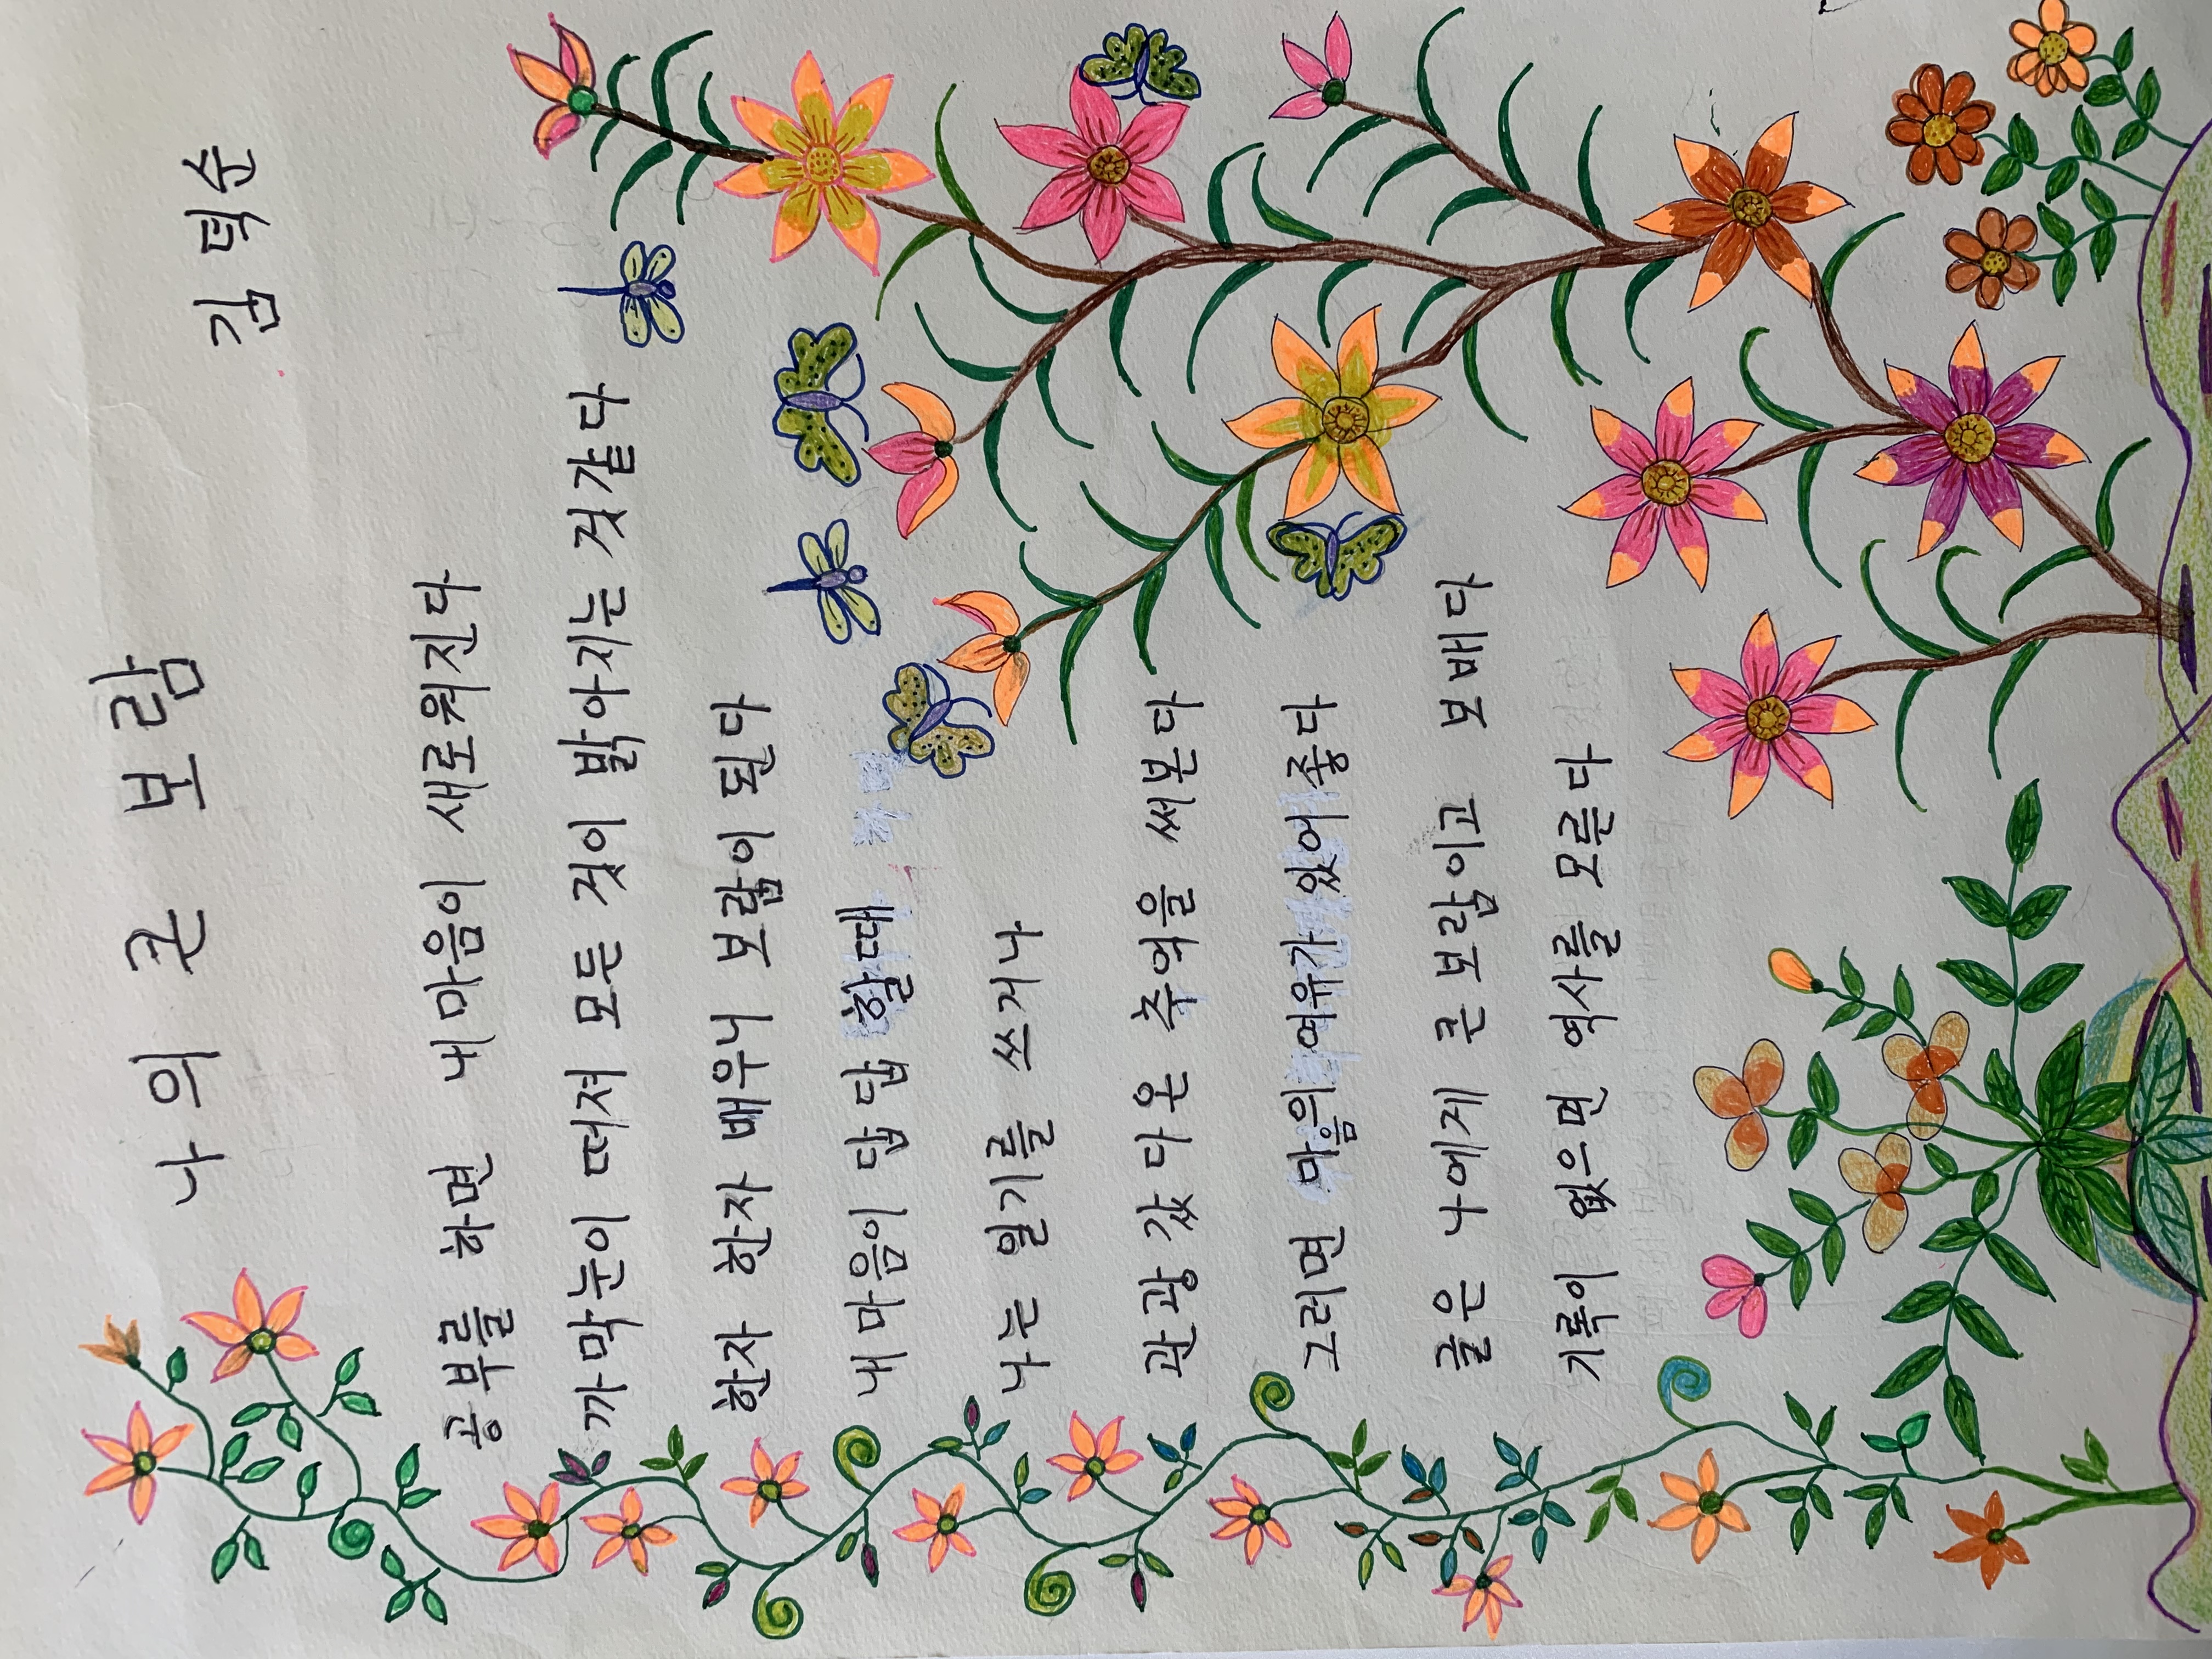 나의 큰 보람
김덕순
공부를 하면 내 마음이 새로워진다
까막눈이 떠져 모든 것이 밝아지는 것 같다
한자 한자 배우니 보람이 된다
내 마음이 답답 할때
나는 일기를 쓰거나
관광 갔다온 추억을 써본다
그러면 마음의 여유가 있어 좋다
글은 나에게 큰 보람이고 보배다
기록이 없으면 역사를 모른다